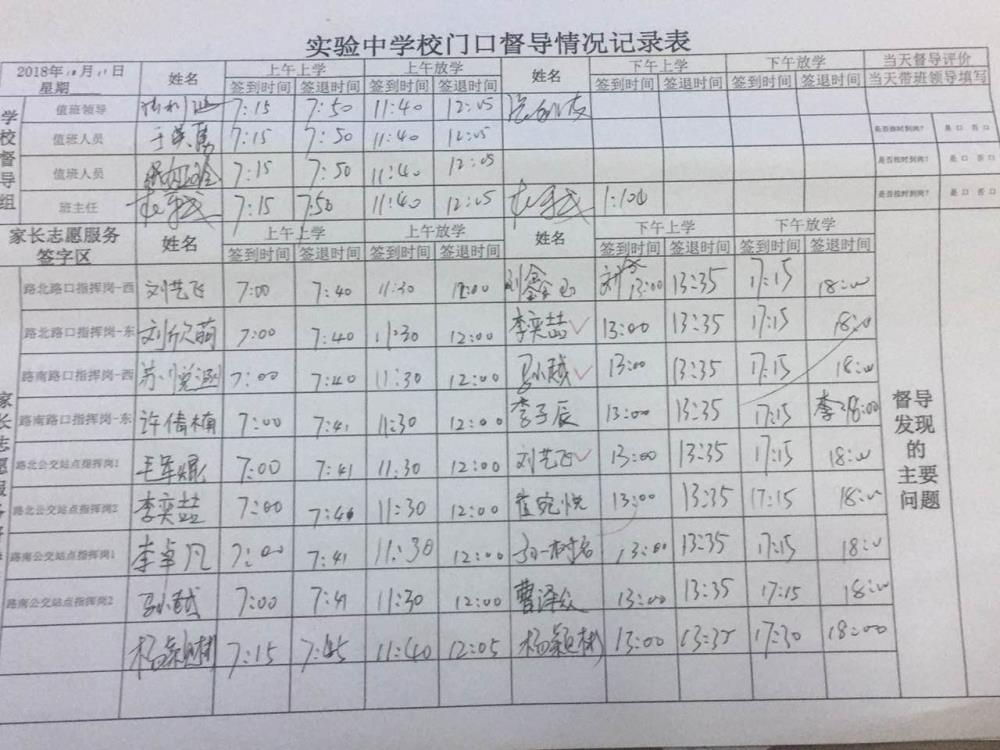 实验中学校门口督导情况记录表
2018年10月11日 星期 姓名 上午上学 上午放学 姓名 下午上学 下午放学 当天督导评价
签到时间 签退时间 签到时间 签退时间 签到时间 签退时间 签到时间 签退时间 当天带班领导填写
学校督导组
值班领导 7:15 7:50 11:40 12:05
值班人员 7:15 7:50 11:40 12:05 是否按时到岗? 是 口 否 口
值班人员 7:15 7:50 11:40 12:05 是否按时到岗? 是 口 否 口
班主任 7:15 7:50 11:40 12:05 是否按时到岗? 是 口 否 口
家长志愿服务签字区 姓名 上午上学 上午放学 姓名 下午上学 下午放学
签到时间 签退时间 签到时间 签退时间 签到时间 签退时间 签到时间 签退时间
路北路口指挥岗-西 刘艺飞 7:00 7:40 11:30 12:00 13:00 13:35 17:15 18:00
路北路口指挥岗-东 刘欣萌 7:00 7:40 11:30 12:00 李奕喆 13:00 13:35 17:15 18:00
路南路口指挥岗-西 7:00 7:40 11:30 12:00 马小越 13:00 13:35 17:15 18:00
路南路口指挥岗-东 许倩楠 7:00 7:41 11:30 12:00 李子辰 13:00 13:35 17:15 18:00
路北公交站点指挥岗1 7:00 7:41 11:30 12:00 刘艺飞 13:00 13:35 17:15 18:00
路北公交站点指挥岗2 李奕喆 7:00 7:40 11:30 12:00 崔宛悦 13:00 13:35 17:15 18:00
路南公交站点指挥岗1 李卓凡 7:00 7:41 11:30 12:00 13:00 13:35 17:15 18:00
路南公交站点指挥岗2 马小越 7:00 7:41 11:30 12:00 曹泽众 13:00 13:35 17:15 18:00
7:15 7:45 11:40 12:05 13:00 13:35 17:30 18:00
督导发现的主要问题